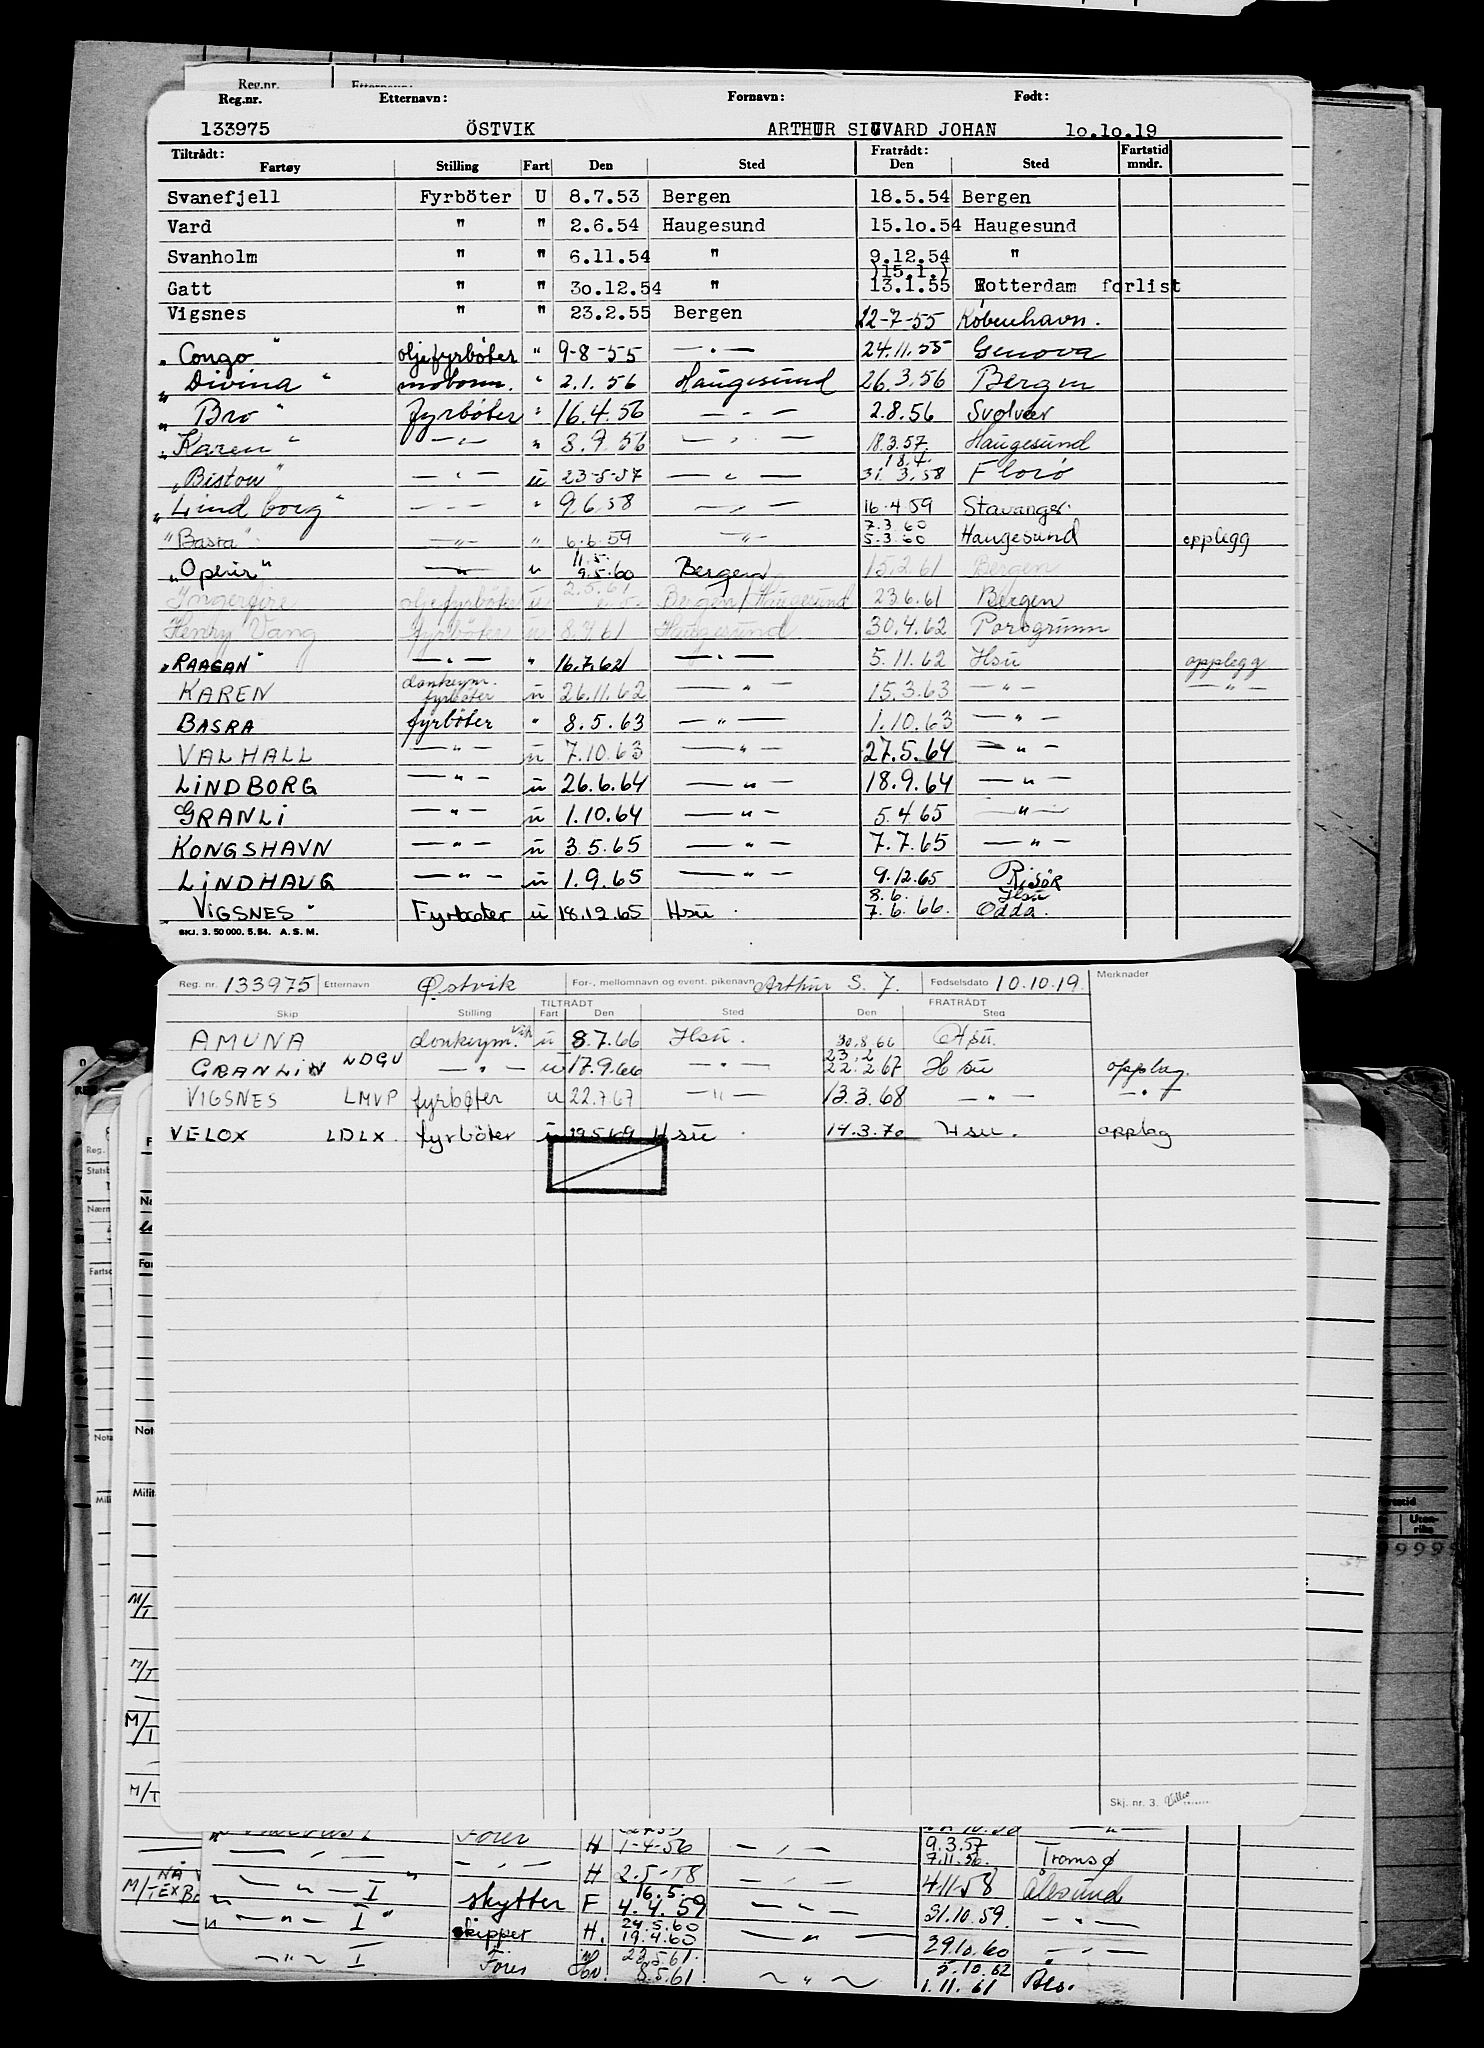 Reg.nr. Etternavn:
Reg.nr. Etternavn: Fornavn: Født:
133975 ÖSTVIK ARTHUR SIGVARD JOHAN 10.10.19
Tiltrådt: Fratrådt: Fartstid
Fartøy Stilling Fart Den Sted Den Sted mndr.
Svanefjell Fyrböter U 8.7.53 Bergen 18.5.54 Bergen
Vard " " 2.6.54 Haugesund 15.10.54 Haugesund
Svanholm " " 6.11.54 " 9.12.54 "
)15.1.)
Gatt " " 30.12.54 " 13.1.55 Rotterdam forlist
Vigsnes " " 23.2.55 Bergen 22-7-55 København.
"Congo" oljefyrbøter " 9-8-55 — " — 24.11.55 Genova
"Divina" motorm. " 2.1.56 Haugesund 26.3.56 Bergen
"Bro" fyrbøter " 16.4.56 — " — 2.8.56 Svolvær
"Karen" — " — " 8.9.56 — " — 18.3.57 Haugesund
18.4.
"Biston" — " — u 23-5-57 — " — 31.3.58 Florø
"Lindborg" — " — " 9.6.58 — " — 16.4.59 Stavanger.
7.3.60
"Basra" — " — " 6.6.59 — " — 5.3.60 Haugesund opplegg
11.5.
"Openir" — " — u 9.5.60 Bergen 15.2.61 Bergen
Ingerfire oljefyrbøter u 2.5.61 Bergen/Haugesund 23.6.61 Bergen
Henry Vang fyrbøter u 8.7.61 Haugesund 30.4.62 Porsgrunn
"RAAGAN" — " — " 16.7.62 — " — 5.11.62 Hsu opplegg
KAREN donkeym. fyrbøter u 26.11.62 — " — 15.3.63 — " — — " —
BASRA fyrbøter " 8.5.63 — " — 1.10.63 — " —
VALHALL — " — u 7.10.63 — " — 27.5.64 — " —
LINDBORG — " — u 26.6.64 — " — 18.9.64 — " —
GRANLI — " — u 1.10.64 — " — 5.4.65 — " —
KONGSHAVN — " — u 3.5.65 — " — 7.7.65 — " —
LINDHAUG — " — u 1.9.65 — " — 9.12.65 Risör
8.6. Hsu
"VIGSNES" Fyrbøter u 18.12.65 Hsu. 7.6.66. Odda.
SKJ. 3. 50 000. 5.54. A.S.M.
Reg. nr. 133975 Etternavn Østvik For-, mellomnavn og event. pikenavn Arthur S. J. Fødselsdato 10.10.19. Merknader
TILTRÅDT FRATRÅDT
Skip Stilling Fart Den Sted Den Sted
AMUNA donkeym. vik u 8.7.66 Hsu. 30.8.66 Hsu.
23.2
GRANLI LDGU — " — u 17.9.66 — " — 22.2.67 Hsu opplag.
VIGSNES LMVP fyrbøter u 22.7.67 — " — 13.3.68 — " — — " —
VELOX LDLX. fyrböter u 29.5.69 Hsu. 14.3.70 Hsu. opplag
Skj. nr. 3.
Fører H 1-4-56 — " — 9.3.57
7.11.56. Tromsø
— " — — " — H 2.5-58 — " — 4-11-58 Ålesund
16.5.
— " — I skytter F 4.4.59 — " — 31.10.59. — " —
24.5.60
— " — I" skipper H. 19.4.60 — " — 29.10.60 — " —
23.5.61. 5.10.62
— " — I Förer 8.5.61. — " — 1.11.61 Åls.
M/T
M/T
M/T
M/T